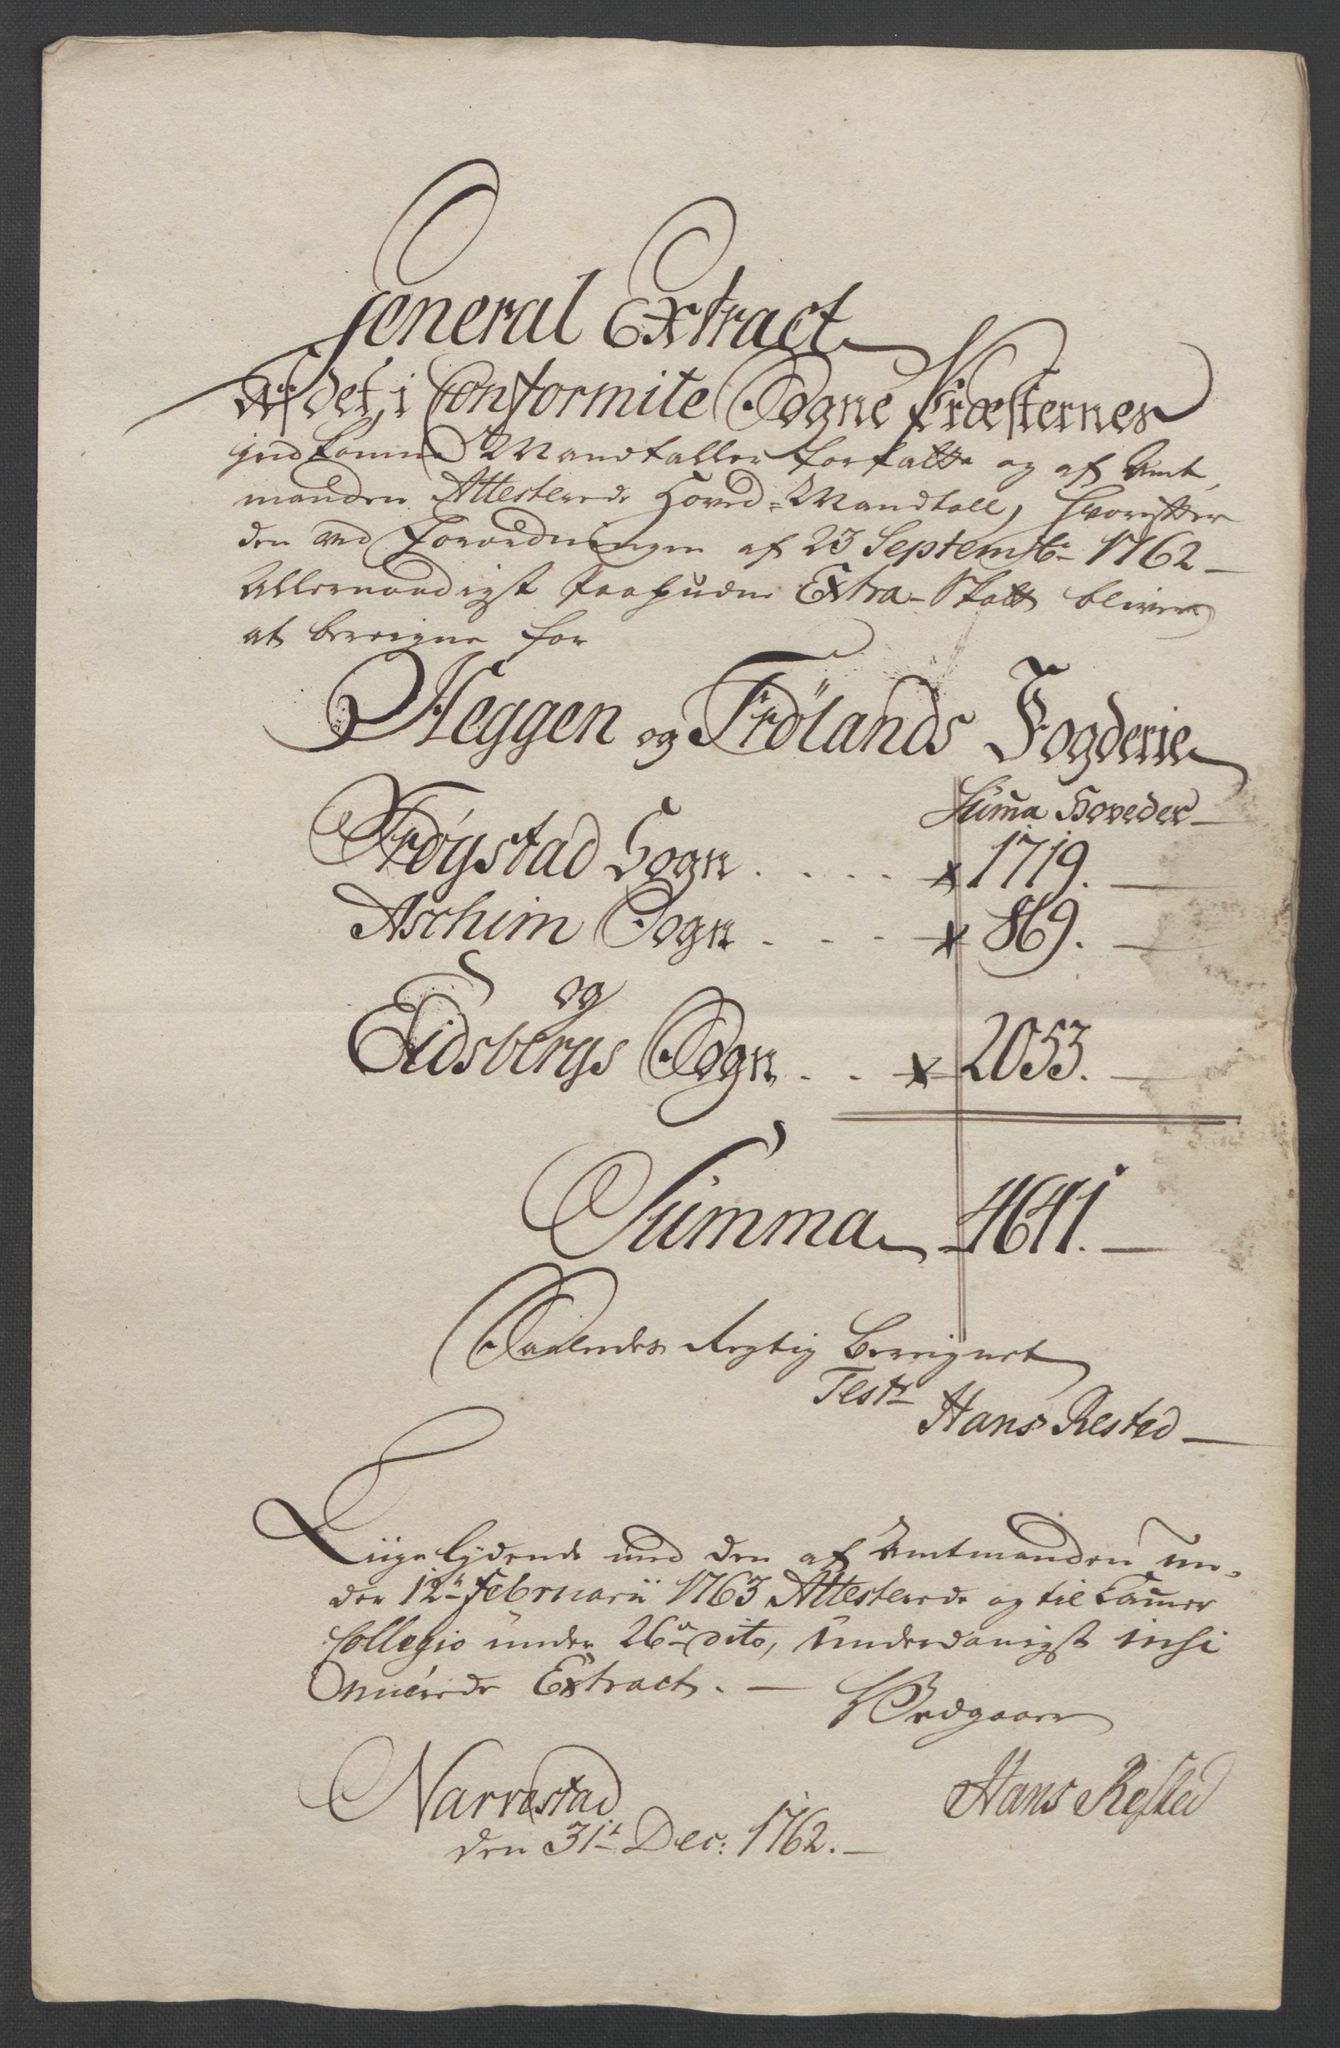 General Extract
Af det, i Conformite Sogne Præsternes
indkomne Mandtaller forfatte og af Amt,
manden Attesterede Hoved-Mandtall, hvorefter
den ved Forordningen af 23 Septembr 1762
Allernaadigst paabudne Extra-Skatt bliver
at bereigne for
Heggen og Frølands Fogderie
Suma Hoveder
Trögstad Sogn . . . . x 1719.
Aschim Sogn . . . x 869.
og
Eidsbergs Sogn . . x 2053.
Summa 4641.
Saaledes Regtig Bereignet
Test
Hans Rested
Liige lydende med den af Amtmanden un,
der 12te Februarii 1763 Attesterede og til Camer
Collegio under 26de dito, underdanigst insi
nuerede Extract.
Vedgaaer
Narvestad
Hans Rested
den 31t Dec: 1762.